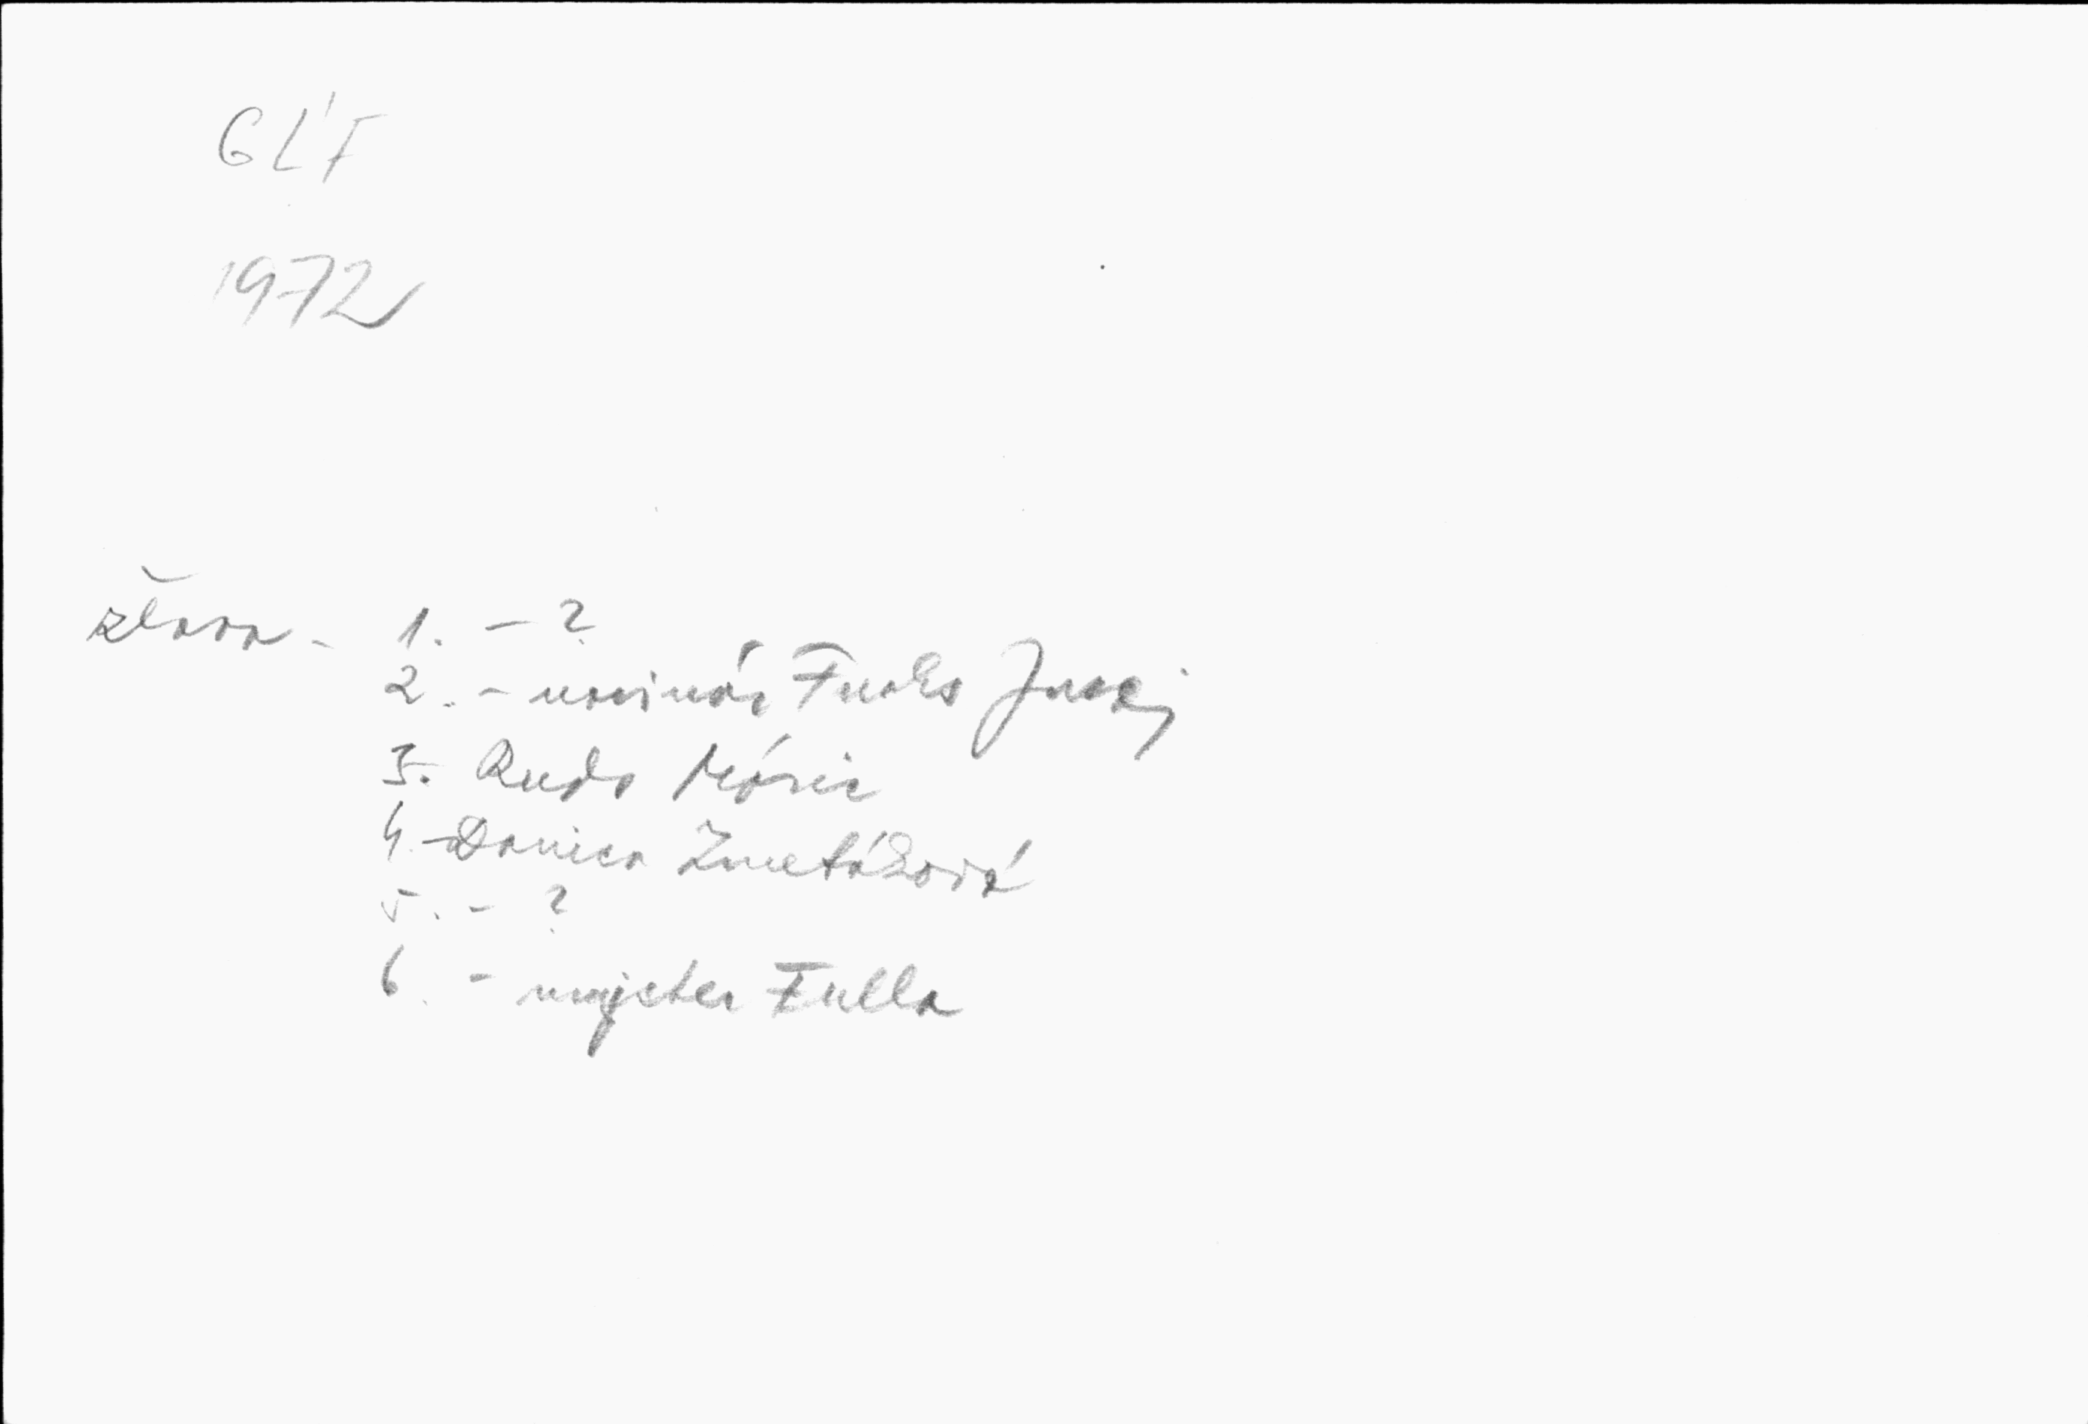 GĽF
1972
zľava - 1. - ?
2. - novinár Fuchs Juraj
3. Rudo Móric
4. - Danica Zmetáková
5. - ?
6. - majster Fulla